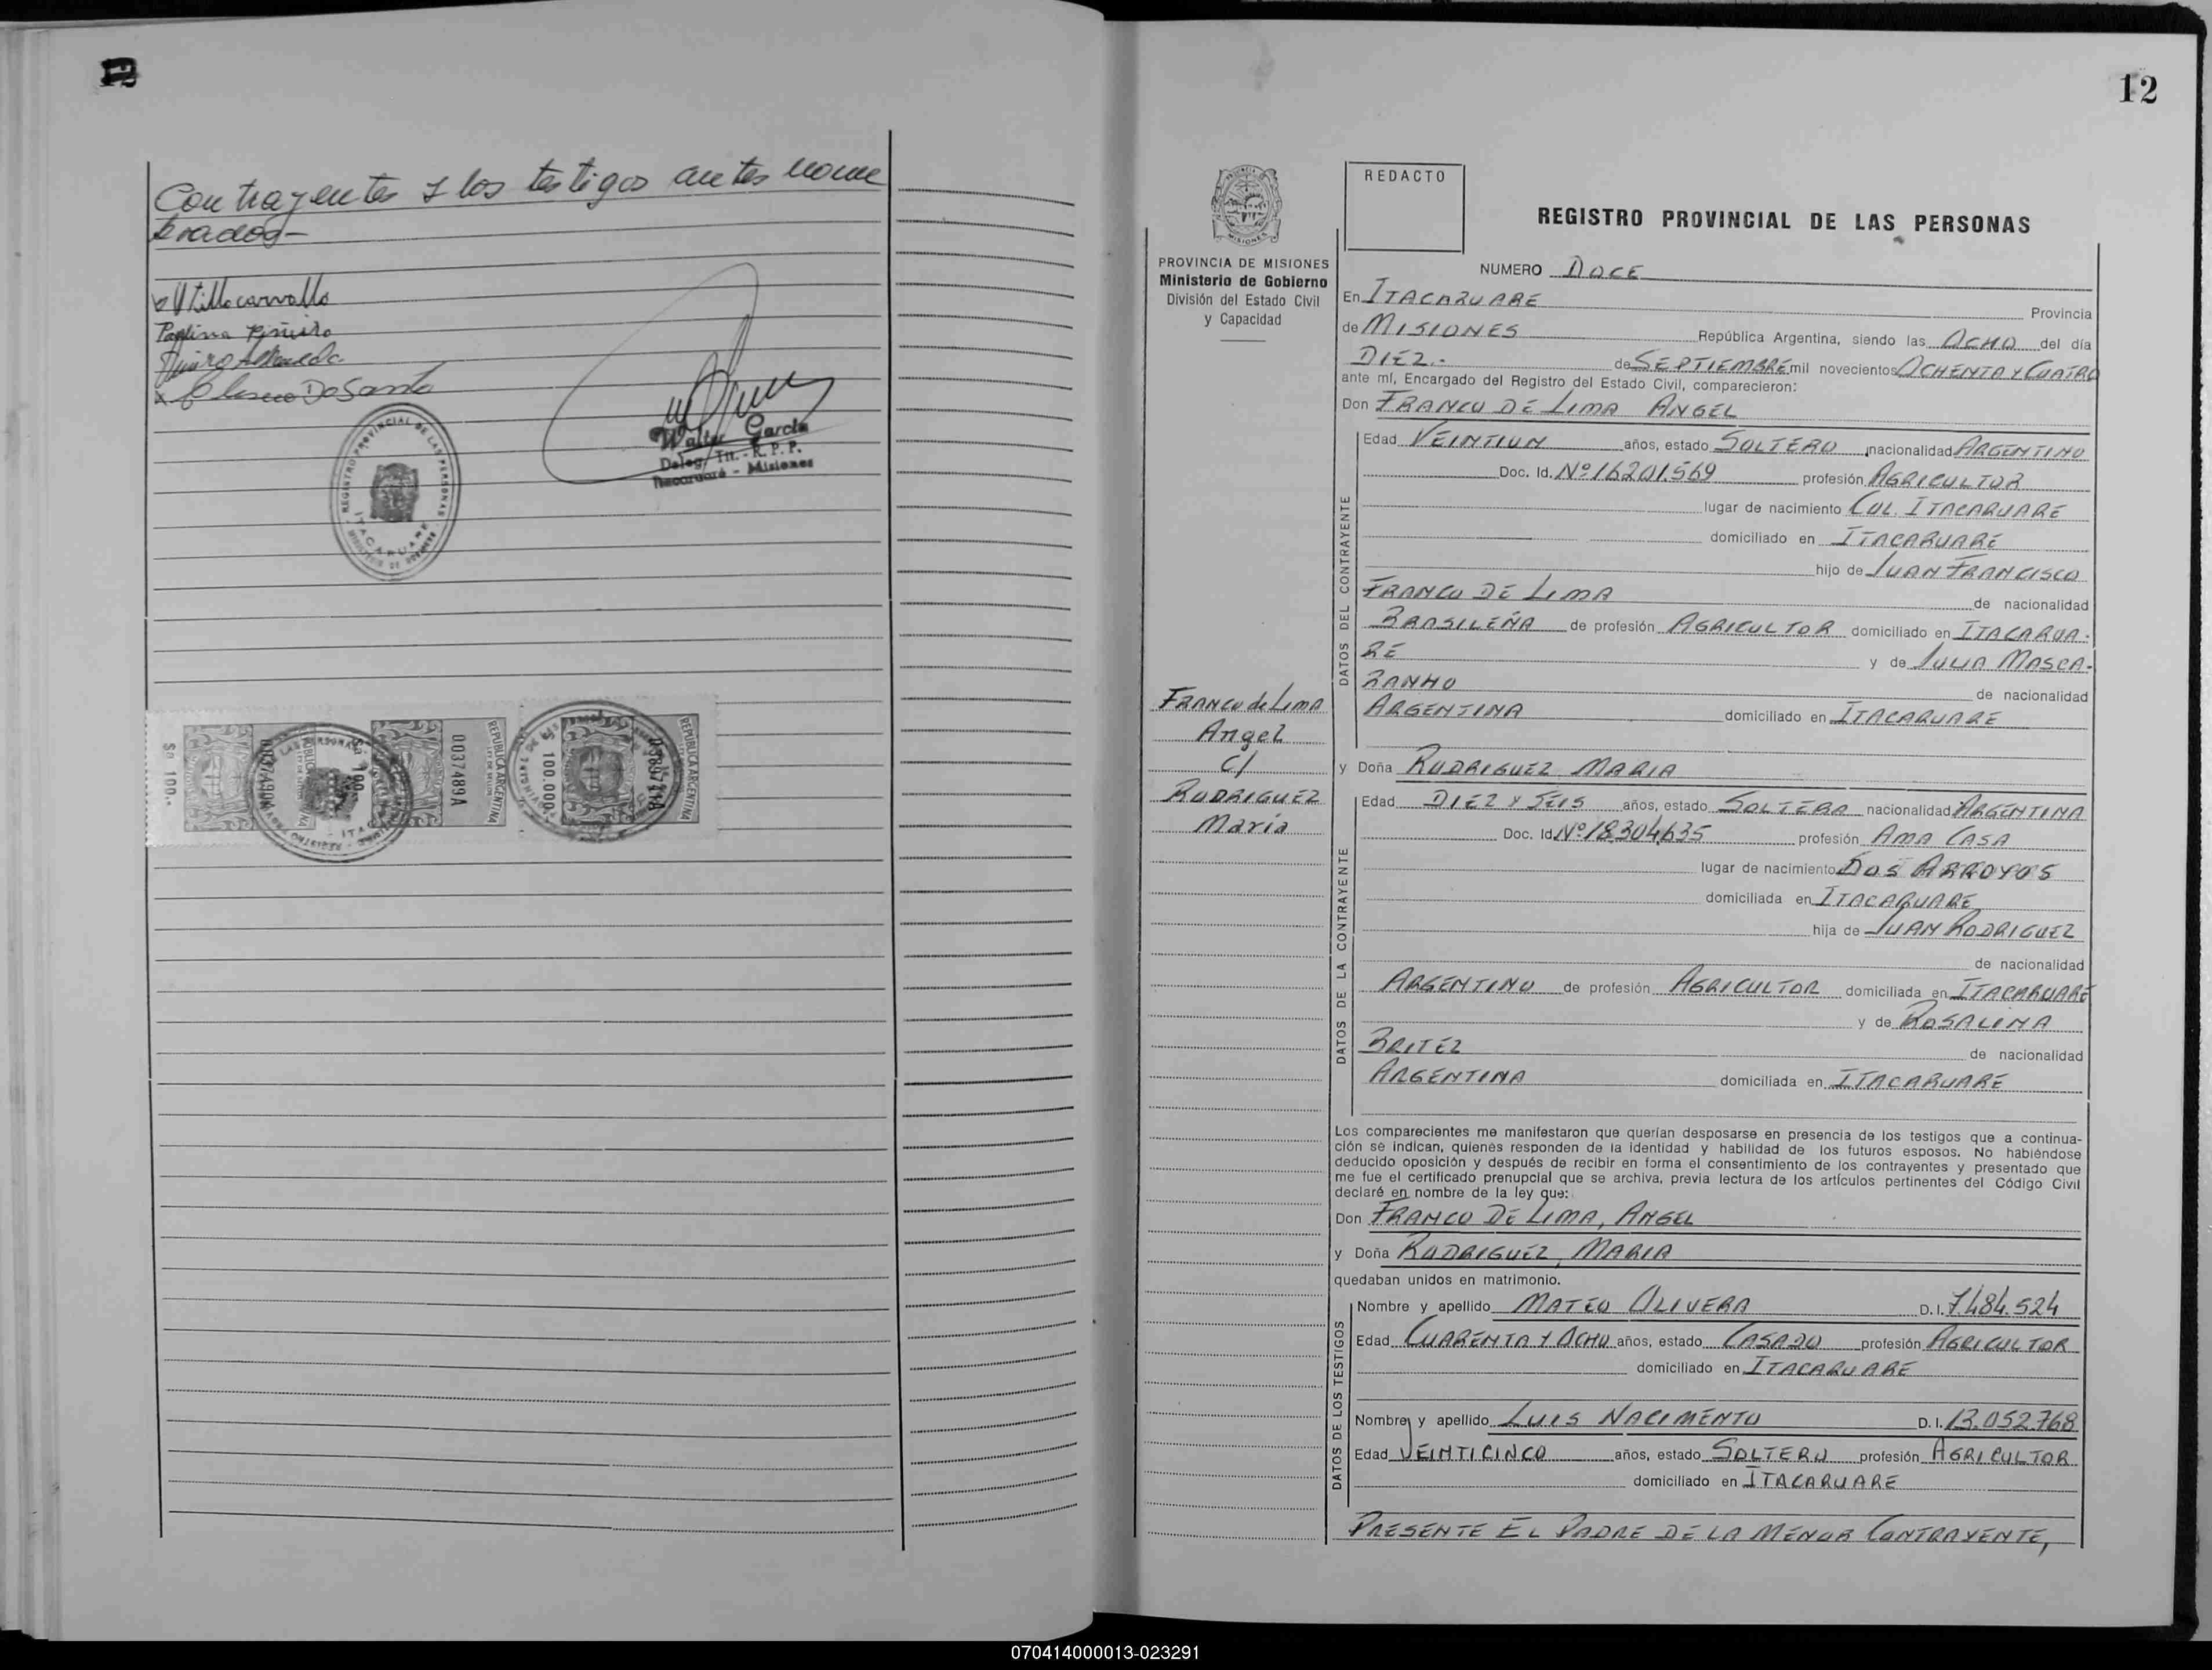 12
Contrayentes y los testigos antes nom
brados-
Walter García
Deleg. Tit. - R. P. P.
Itacaruaré - Misiones
REGISTRO PROVINCIAL DE LAS PERSONAS
ITACARUARE
$a 100.-
REPUBLICA ARGENTINA
0037489A
100.000
REPUBLICA ARGENTINA
12
REDACTO
REGISTRO PROVINCIAL DE LAS PERSONAS
MISIONES
PROVINCIA DE MISIONES
Ministerio de Gobierno
División del Estado Civil
y Capacidad
NUMERO DOCE
En ITACARUARE Provincia
de MISIONES República Argentina, siendo las OCHO del día
DIEZ.- de SEPTIEMBRE mil novecientos OCHENTA Y CUATRO
ante mí, Encargado del Registro del Estado Civil, comparecieron:
Don FRANCO DE LIMA ANGEL
DATOS DEL CONTRAYENTE
Edad VEINTIUN años, estado SOLTERO nacionalidad ARGENTINO
Doc. Id. Nº 16201.569 profesión AGRICULTOR
lugar de nacimiento COL. ITACARUARE
domiciliado en ITACARUARE
hijo de JUAN FRANCISCO
FRANCO DE LIMA de nacionalidad
BRASILEÑA de profesión AGRICULTOR domiciliado en ITACARUA-
RE y de JULIA MASCA-
RANHO de nacionalidad
ARGENTINA domiciliado en ITACARUARE
FRANCO de LIMA
Angel
c/
RODRIGUEZ
María
y Doña RODRIGUEZ MARIA
DATOS DE LA CONTRAYENTE
Edad DIEZ Y SEIS años, estado SOLTERA nacionalidad ARGENTINA
Doc. Id. Nº 18.304.635 profesión AMA CASA
lugar de nacimiento DOS ARROYOS
domiciliada en ITACARUARE
hija de JUAN RODRIGUEZ
de nacionalidad
ARGENTINO de profesión AGRICULTOR domiciliada en ITACARUARE
y de ROSALINA
BRITEZ de nacionalidad
ARGENTINA domiciliada en ITACARUARE
Los comparecientes me manifestaron que querían desposarse en presencia de los testigos que a continua-
ción se indican, quienes responden de la identidad y habilidad de los futuros esposos. No habiéndose
deducido oposición y después de recibir en forma el consentimiento de los contrayentes y presentado que
me fue el certificado prenupcial que se archiva, previa lectura de los artículos pertinentes del Código Civil
declaré en nombre de la ley que:
Don FRANCO DE LIMA, ANGEL
y Doña RODRIGUEZ, MARIA
quedaban unidos en matrimonio.
DATOS DE LOS TESTIGOS
Nombre y apellido MATEO OLIVERA D. I. 7.484.524
Edad CUARENTA Y OCHO años, estado CASADO profesión AGRICULTOR
domiciliado en ITACARUARE
Nombre y apellido LUIS NACIMENTO D. I. 13.052.768
Edad VEINTICINCO años, estado SOLTERO profesión AGRICULTOR
domiciliado en ITACARUARE
PRESENTE EL PADRE DE LA MENOR CONTRAYENTE,
070414000013-023291